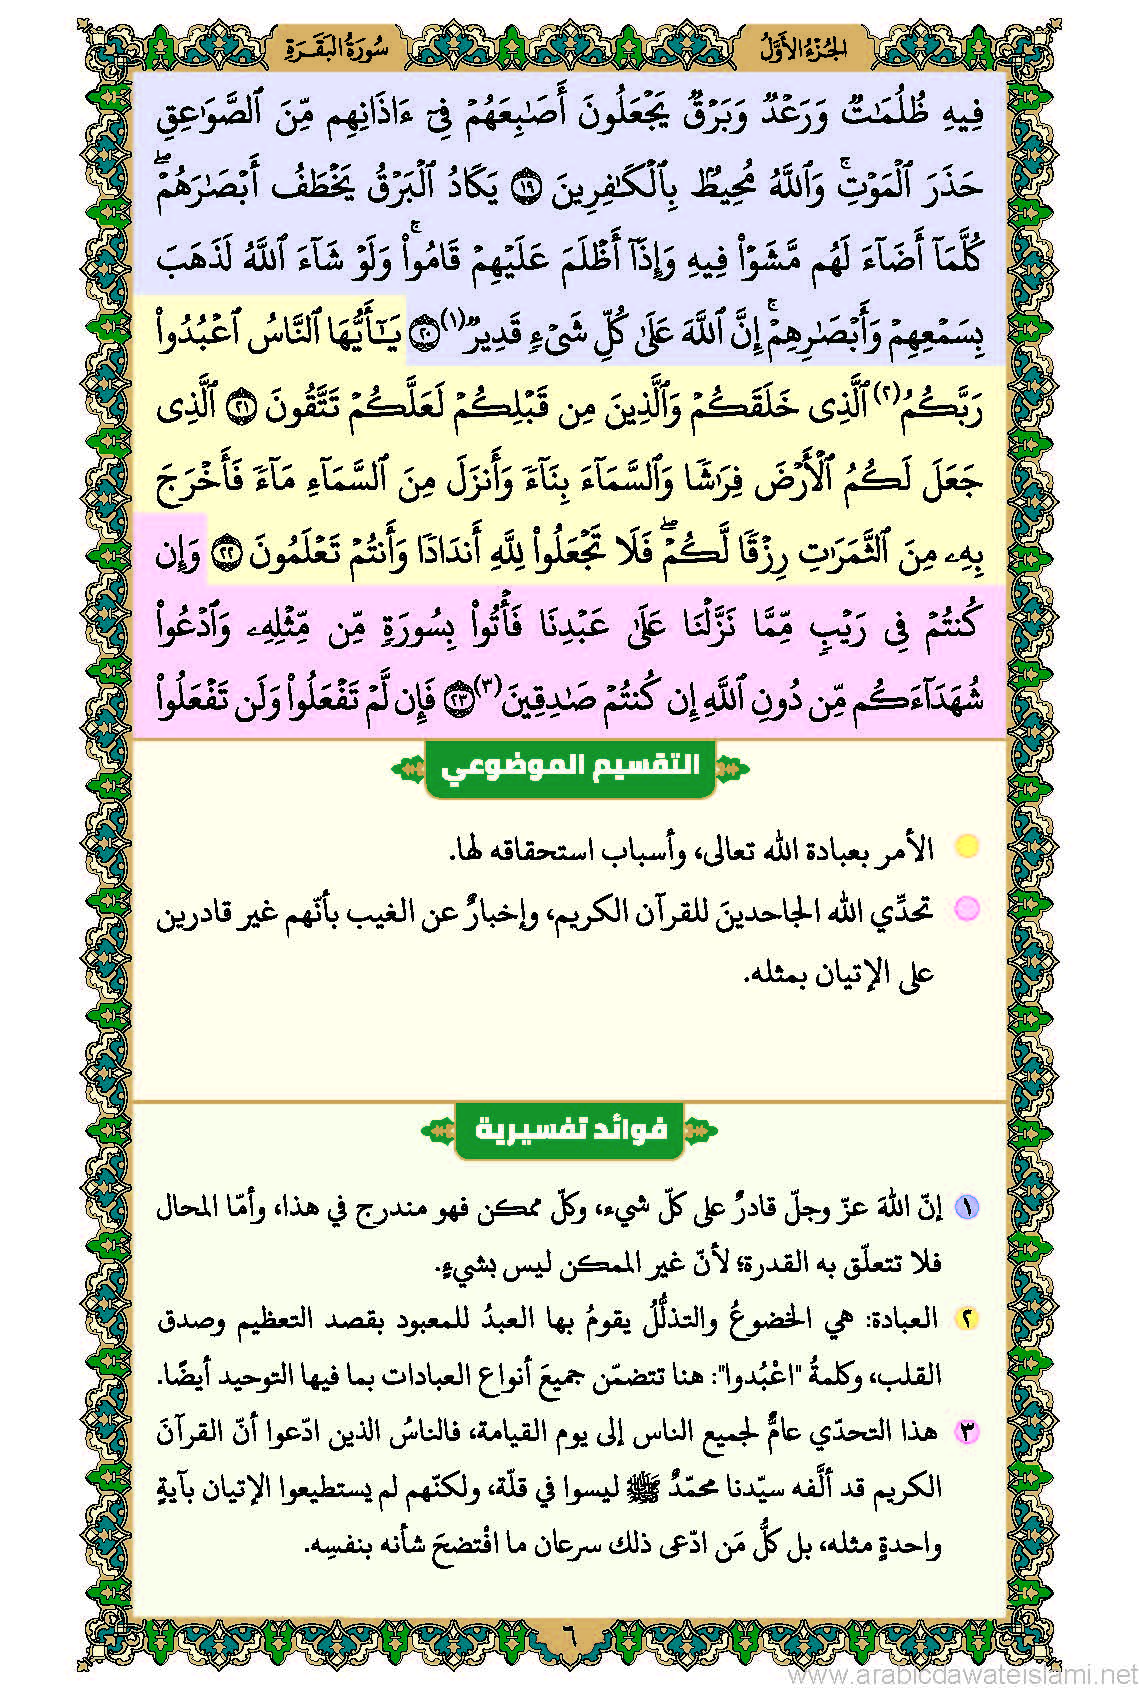 الجُزْءُ الأَوَّلُ
سُورَةُ البَقَرَةِ
فِيهِ ظُلُمَٰتٌ وَرَعْدٌ وَبَرْقٌ يَجْعَلُونَ أَصَٰبِعَهُمْ فِىٓ ءَاذَانِهِم مِّنَ ٱلصَّوَٰعِقِ
حَذَرَ ٱلْمَوْتِ ۚ وَٱللَّهُ مُحِيطٌۢ بِٱلْكَٰفِرِينَ ١٩ يَكَادُ ٱلْبَرْقُ يَخْطَفُ أَبْصَٰرَهُمْ ۖ
كُلَّمَآ أَضَآءَ لَهُم مَّشَوْا۟ فِيهِ وَإِذَآ أَظْلَمَ عَلَيْهِمْ قَامُوا۟ ۚ وَلَوْ شَآءَ ٱللَّهُ لَذَهَبَ
بِسَمْعِهِمْ وَأَبْصَٰرِهِمْ ۚ إِنَّ ٱللَّهَ عَلَىٰ كُلِّ شَىْءٍ قَدِيرٌ (١) ٢٠ يَٰٓأَيُّهَا ٱلنَّاسُ ٱعْبُدُوا۟
رَبَّكُمُ (٢) ٱلَّذِى خَلَقَكُمْ وَٱلَّذِينَ مِن قَبْلِكُمْ لَعَلَّكُمْ تَتَّقُونَ ٢١ ٱلَّذِى
جَعَلَ لَكُمُ ٱلْأَرْضَ فِرَٰشًا وَٱلسَّمَآءَ بِنَآءً وَأَنزَلَ مِنَ ٱلسَّمَآءِ مَآءً فَأَخْرَجَ
بِهِۦ مِنَ ٱلثَّمَرَٰتِ رِزْقًا لَّكُمْ ۖ فَلَا تَجْعَلُوا۟ لِلَّهِ أَندَادًا وَأَنتُمْ تَعْلَمُونَ ٢٢ وَإِن
كُنتُمْ فِى رَيْبٍ مِّمَّا نَزَّلْنَا عَلَىٰ عَبْدِنَا فَأْتُوا۟ بِسُورَةٍ مِّن مِّثْلِهِۦ وَٱدْعُوا۟
شُهَدَآءَكُم مِّن دُونِ ٱللَّهِ إِن كُنتُمْ صَٰدِقِينَ (٣) ٢٣ فَإِن لَّمْ تَفْعَلُوا۟ وَلَن تَفْعَلُوا۟
التقسيم الموضوعي
الأمر بعبادة الله تعالى، وأسباب استحقاقه لها.
تحدِّي الله الجاحدينَ للقرآن الكريم، وإخبارٌ عن الغيب بأنّهم غير قادرين
على الإتيان بمثله.
فوائد تفسيرية
١ إنّ اللهَ عزّ وجلّ قادرٌ على كلّ شيء، وكلّ ممكن فهو مندرج في هذا، وأمّا المحال
فلا تتعلّق به القدرة؛ لأنّ غير الممكن ليس بشيءٍ.
٢ العبادة: هي الخضوعُ والتذلُّلُ يقومُ بها العبدُ للمعبود بقصد التعظيم وصدق
القلب، وكلمةُ "اعْبُدوا": هنا تتضمّن جميعَ أنواع العبادات بما فيها التوحيد أيضًا.
٣ هذا التحدّي عامٌّ لجميع الناس إلى يوم القيامة، فالناسُ الذين ادّعوا أنّ القرآنَ
الكريم قد ألَّفه سيّدنا محمّدٌ ﷺ ليسوا في قلّة، ولكنّهم لم يستطيعوا الإتيان بآيةٍ
واحدةٍ مثله، بل كلُّ مَن ادّعى ذلك سرعان ما افْتضحَ شأنه بنفسِه.
٦
www.arabicdawateislami.net